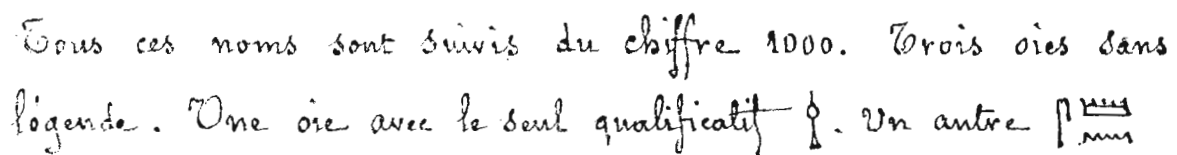 Tous ces noms sont suivis du chiffre 1000. Trois oies sans
légende. Une oie avec le seul qualificatif . Un autre 𓋴𓏠𓈖